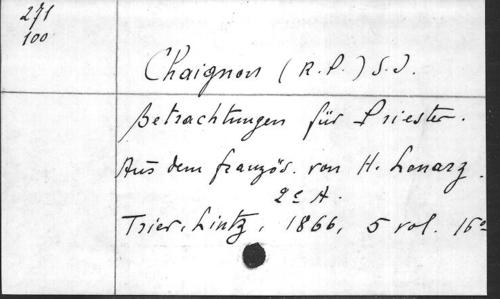 271
100
Chaignon (R.P.) S.J.
Betrachtungen für Priester.
Aus dem französ. von H. Lenarz.
2e A.
Trier, Lintz, 1866, 5 vol. 16°